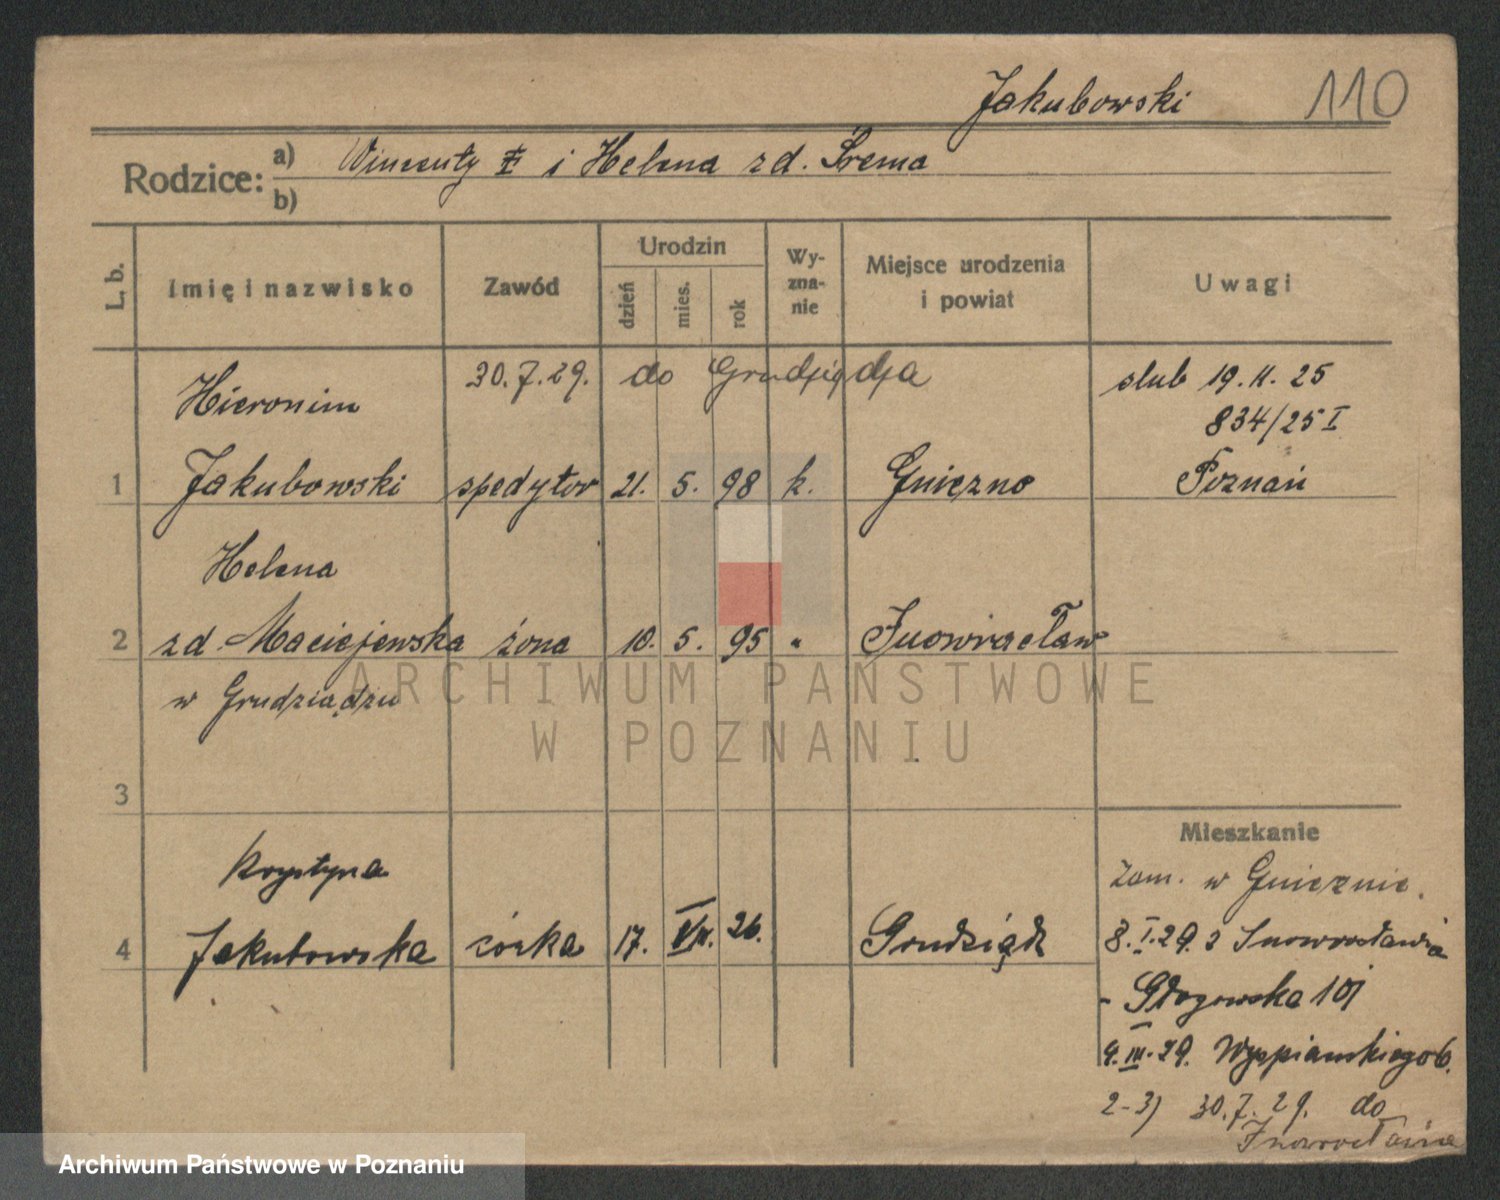 Jakubowski 110
Rodzice: a) Wincenty i Helena zd. Śrema
b)
L. b. Imię i nazwisko Zawód Urodzin dzień mies. rok Wyznanie Miejsce urodzenia i powiat Uwagi
30.7.29. do Grudziądza
Hieronim
ślub 19.11.25
834/25 I
1 Jakubowski spedytor 21. 5. 98 k. Gniezno Poznań
Helena
2 zd. Maciejewska żona 10. 5. 95 " Inowrocław
w Grudziądzu
3
Mieszkanie
Krystyna
zam. w Gnieźnie.
4 Jakubowska córka 17. VII. 26. Grudziądz
8.I.29. z Inowrocławia
- Głogowska 101
4.III.29. Wyspiańskiego 6.
2-3) 30.7.29. do
Inowrocławia
ARCHIWUM PAŃSTWOWE
W POZNANIU
Archiwum Państwowe w Poznaniu